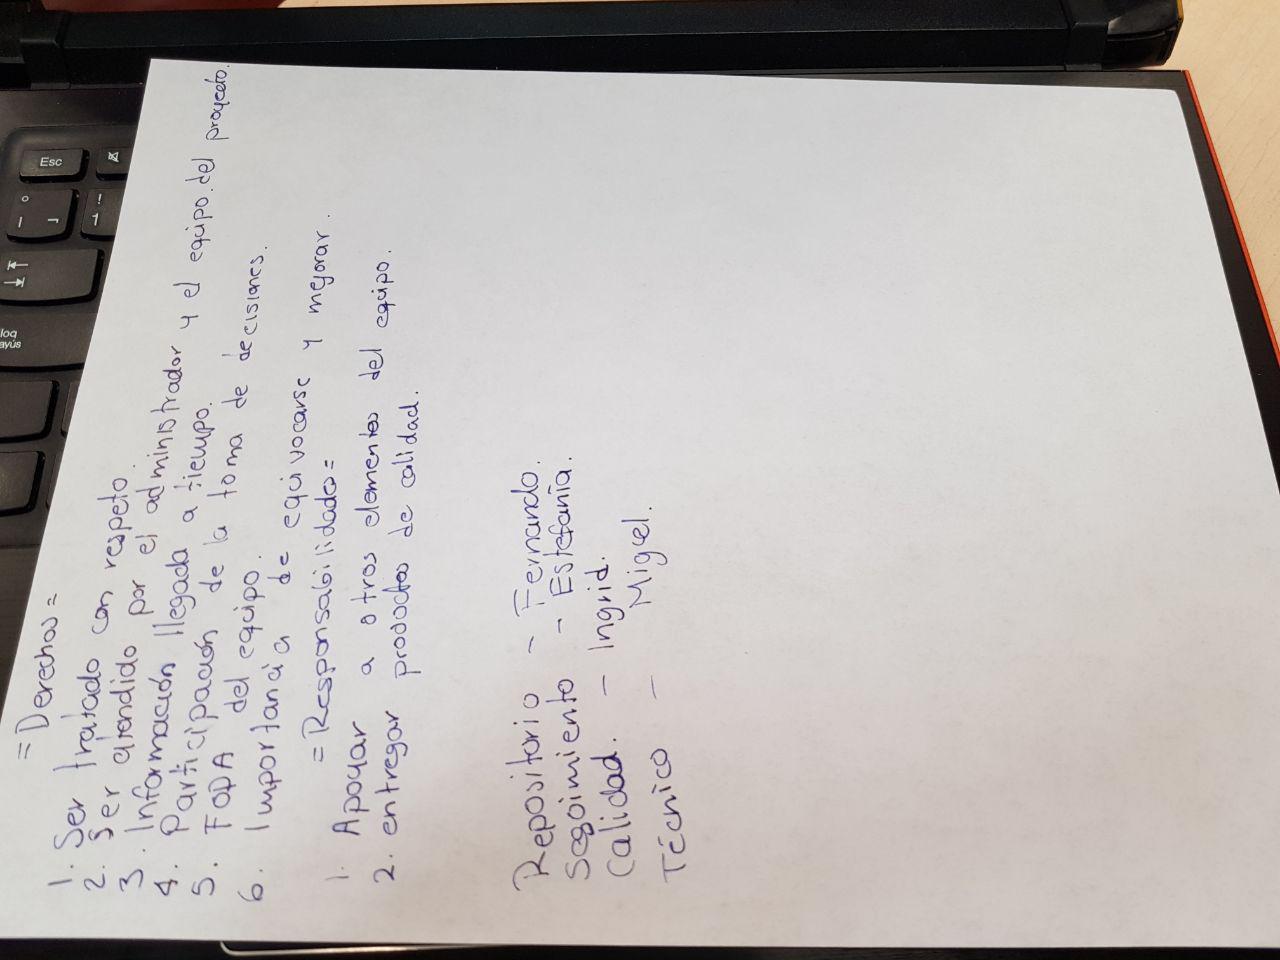 =Derechos=
1. Ser tratado con respeto.
2. Ser atendido por el administrador y el equipo del proyecto.
3. Información llegada a tiempo.
4. Participación de la toma de decisiones.
5. FODA del equipo.
6. Importancia de equivocarse y mejorar.
=Responsabilidades=
1. Apoyar a otros elementos del equipo.
2. entregar productos de calidad.
Repositorio - Fernando.
Seguimiento - Estefanía.
Calidad. - Ingrid.
Técnico - Miguel.
Esc
loq
ayús